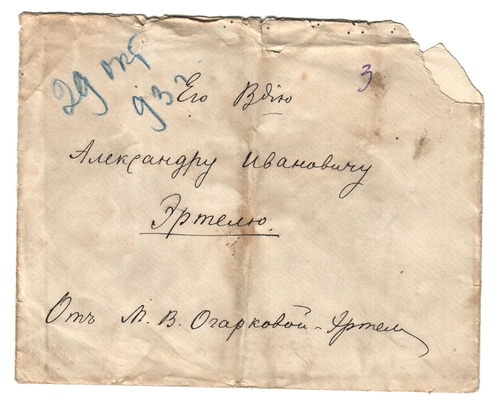 29 окт
93 г
3
Его Вдію
Александру Ивановичу
Эртелю.
Отъ М. В. Огарковой-Эртель